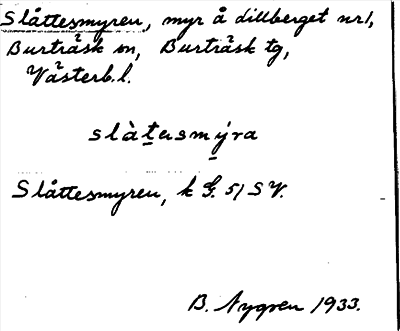 Slåttesmyren, myr å Lillberget nr 1,
Burträsk sn, Burträsk tg,
Västerb. l.
slàtasmýra
Slåttesmyren, k G. 51 S V.
B. Nygren 1933.